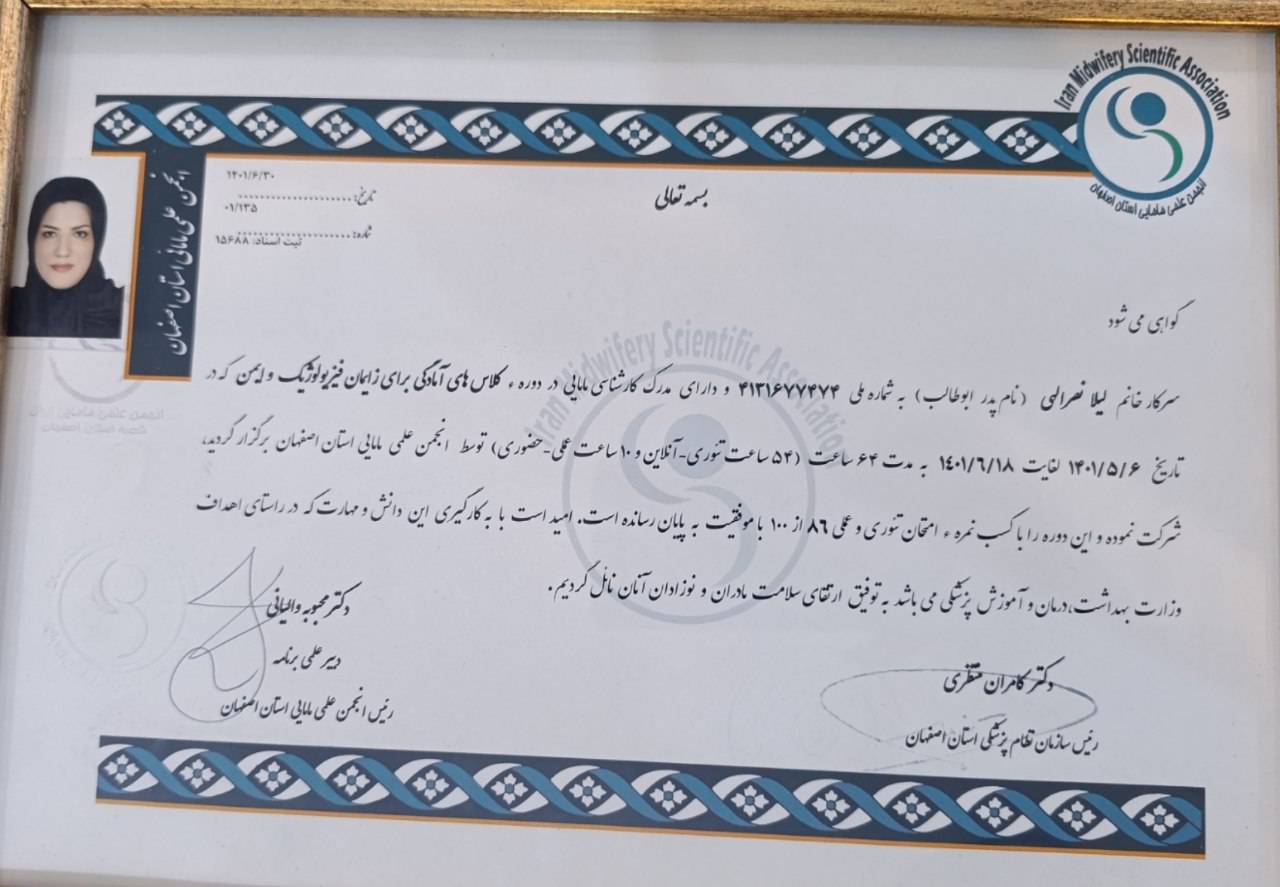 Iran Midwifery Scientific Association
انجمن علمی مامایی استان اصفهان
انجمن علمی مامایی استان اصفهان
بسمه تعالی
۱۴۰۱/۶/۳۰
تاریخ: ......................
۰۱/۱۳۵
شماره: ......................
ثبت اسناد: ۱۵۶۸۸
گواهی می شود
سرکار خانم لیلا نصرالهی (نام پدر ابوطالب) به شماره ملی ۴۱۳۱۶۷۷۴۷۴ و دارای مدرک کارشناسی مامایی در دوره ء کلاس های آمادگی برای زایمان فیزیولوژیک و ایمن که در
تاریخ ۱۴۰۱/۵/۶ لغایت ۱۴۰۱/۶/۱۸ به مدت ۶۴ ساعت (۵۴ ساعت تئوری-آنلاین و ۱۰ ساعت عملی-حضوری) توسط انجمن علمی مامایی استان اصفهان برگزار گردید،
شرکت نموده و این دوره را با کسب نمره ء امتحان تئوری و عملی ۸۶ از ۱۰۰ با موفقیت به پایان رسانده است. امید است با به کارگیری این دانش و مهارت که در راستای اهداف
وزارت بهداشت،درمان و آموزش پزشکی می باشد به توفیق ارتقای سلامت مادران و نوزادان آنان نائل گردیم.
Iran Midwifery Scientific Association
دکتر کامران منتظری
رئیس سازمان نظام پزشکی استان اصفهان
دکتر محبوبه والیانی
دبیر علمی برنامه
رئیس انجمن علمی مامایی استان اصفهان
انجمن علمی مامایی ایران
شعبه استان اصفهان